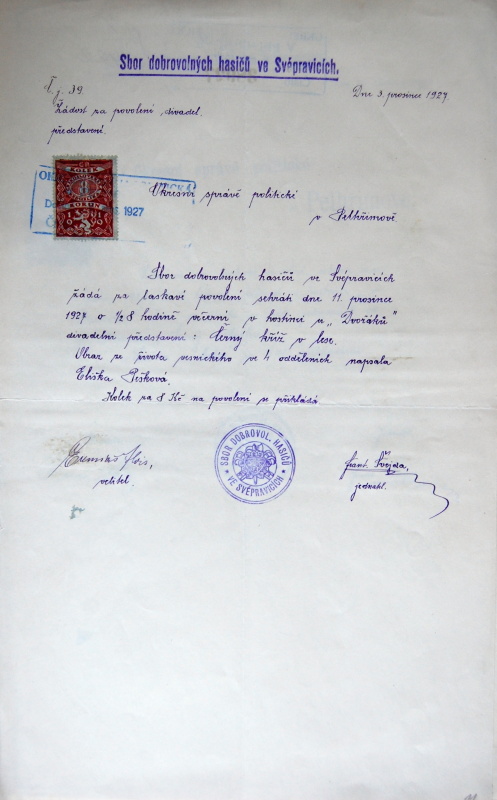 Sbor dobrovolných hasičů ve Svépravicích.
Č. j. 39.
Dne 3. prosince 1927.
Žádost za povolení divadel.
představení.
KOLEK
KORUN
1927
Okresní správě politické
v Pelhřimově
Sbor dobrovolných hasičů ve Svépravicích
žádá za laskavé povolení sehráti dne 11. prosince
1927 o 1/2 8 hodině večerní v hostinci u „Dvořáků"
divadelní představení: Černý kříž v lese.
Obraz ze života vesnického ve 4 odděleních napsala
Eliška Pešková.
Kolek za 8 Kč na povolení se přikládá.
SBOR DOBROVOL. HASIČŮ
VE SVÉPRAVICÍCH
velitel.
Frant. Švejda,
jednatel.